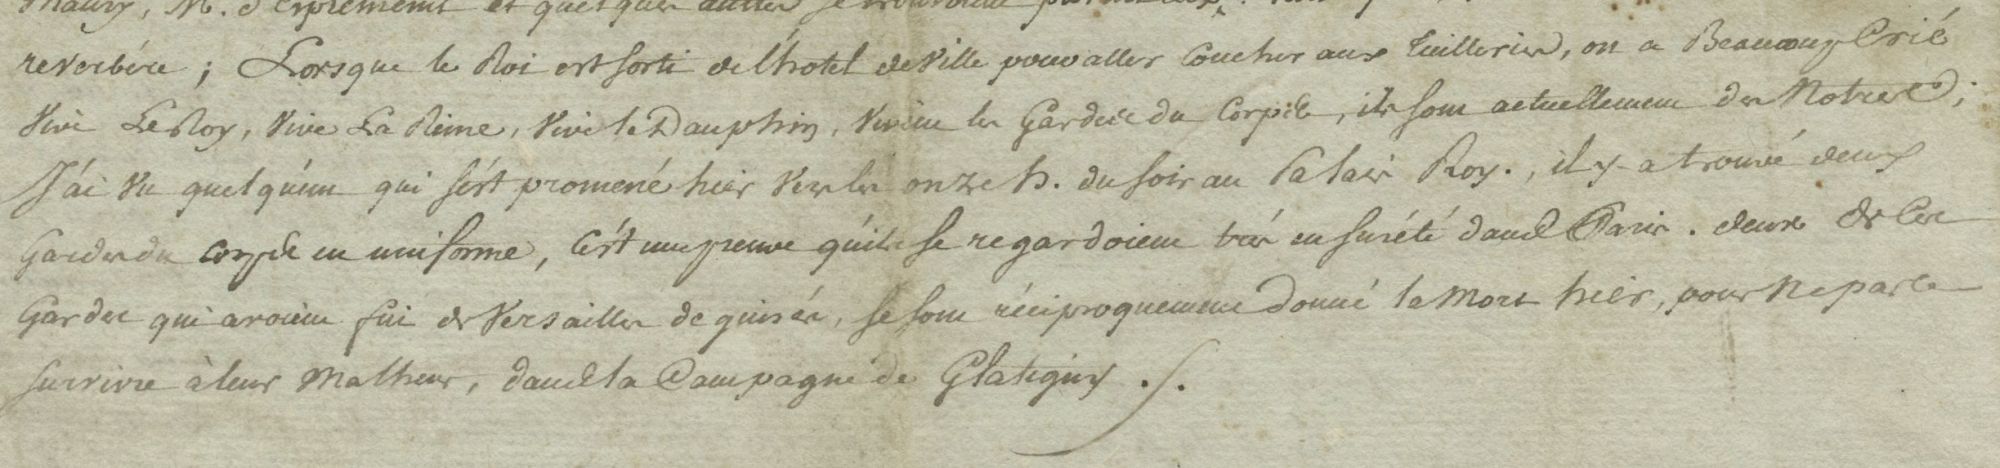 Maury, M. d'Epremenil et quelques autres se trouvoient
reverbére ; Lorsque le Roi est sorti de l'hotel de Ville pour aller Coucher aux Tuilleries, on a Beaucoup Crié
Vive Le Roy, Vive La Reine, Vive le Dauphin, Vivent les Gardes du Corps, ils sont actuellement des Notres ;
J'ai vu quelqu'un qui s'est promené hier vers les onze h. du soir au Palais Roy., il y a trouvé deux
Gardes du Corps en uniforme, C'est une preuve qu'ils se regardoient très en sureté dans Paris. deux de Ces
Gardes qui avoient fui de Versailles deguisés, se sont réciproquement donné la Mort hier, pour Ne pas
survivre à leur Malheur, dans la Campagne de Glatigny ./.